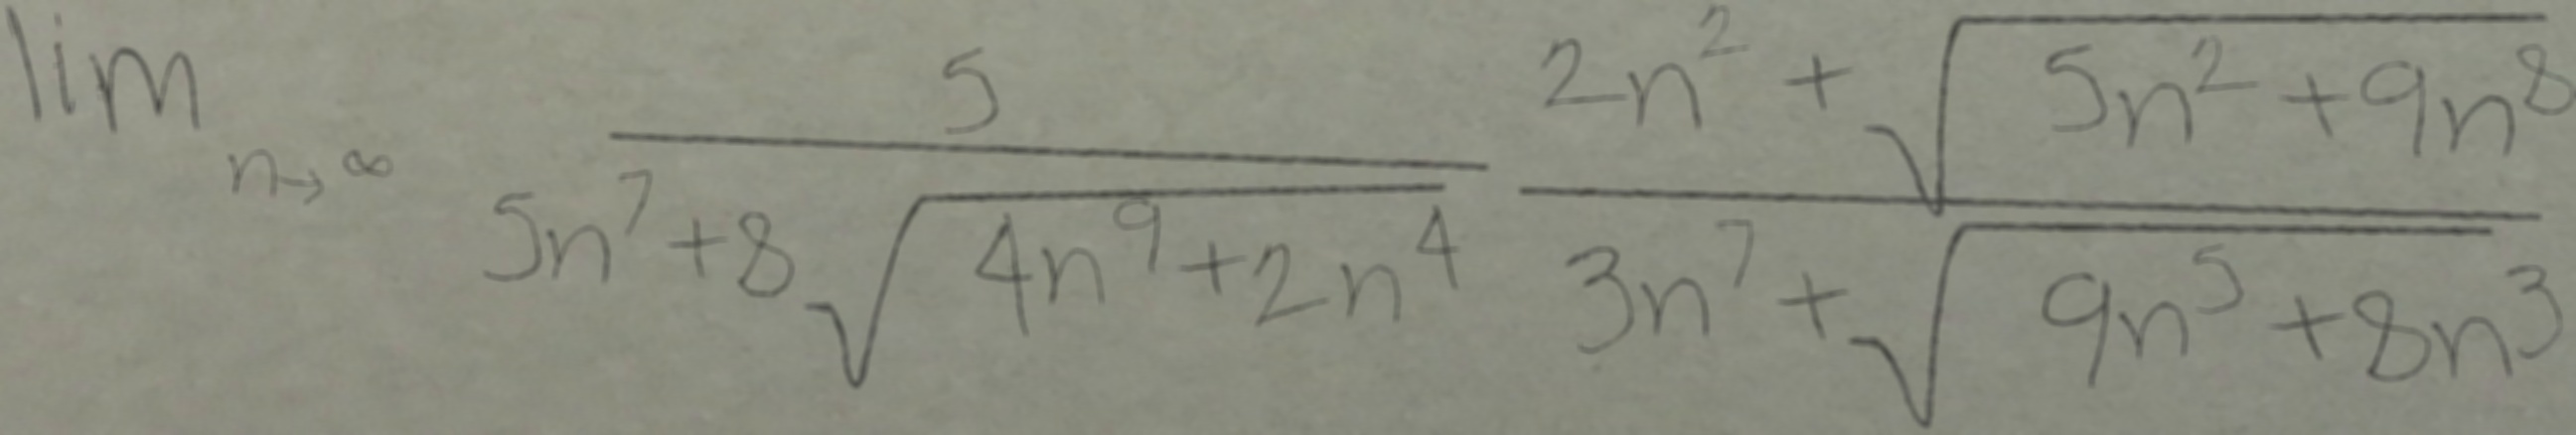 \lim_{n \to \infty} \frac{5}{5n^7+8\sqrt{4n^9+2n^4}} \frac{2n^2+\sqrt{5n^2+9n^8}}{3n^7+\sqrt{9n^5+8n^3}}